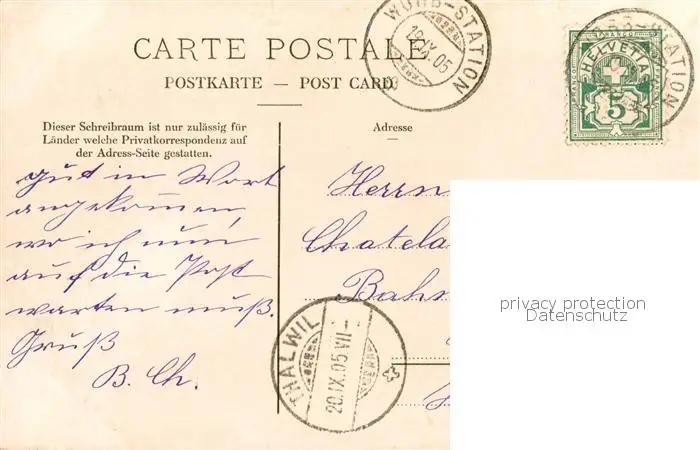 CARTE POSTALE
POSTKARTE — POST CARD
WORB-STATION
19.IX.05
HELVETIA
FRANCO
5
Dieser Schreibraum ist nur zulässig für
Länder welche Privatkorrespondenz auf
der Adress-Seite gestatten.
Adresse
gut in Worb
angekommen,
wo ich nun
auf die Post
warten muß.
Gruß
B. Ch.
Herrn
Chatela
Bahn
THALWIL
20.IX.05 VII–
privacy protection
Datenschutz